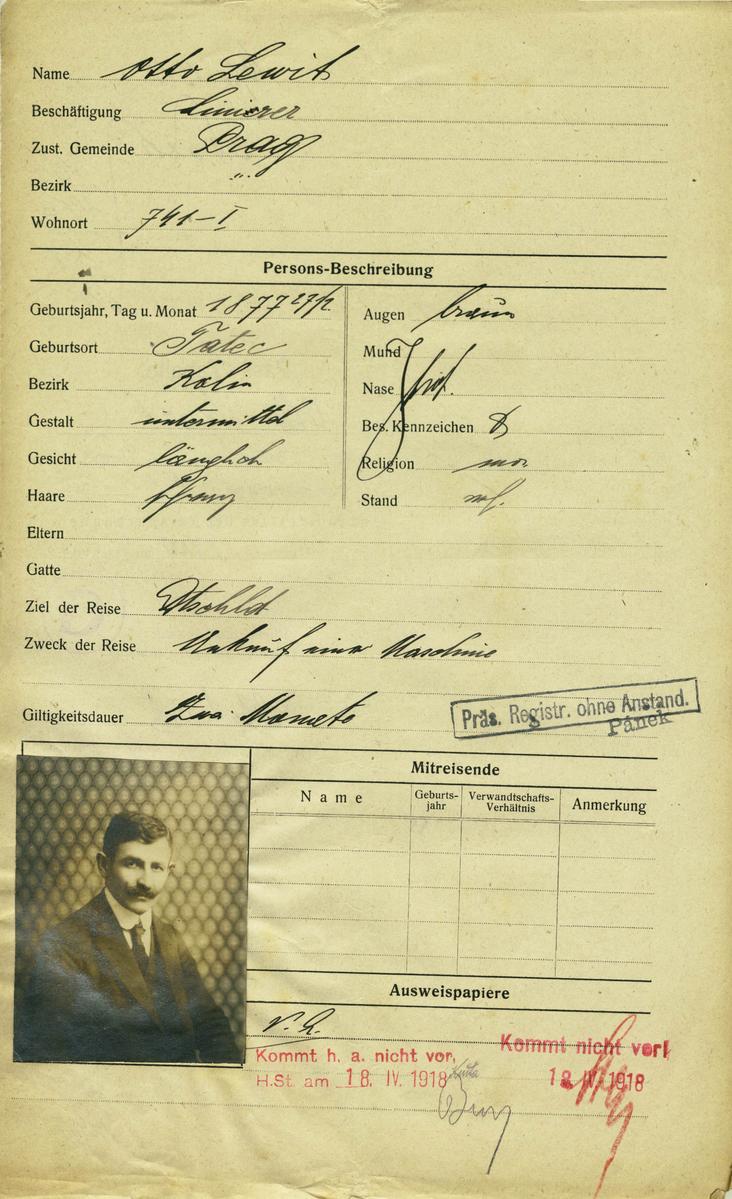 Name Otto Lewit
Beschäftigung Linierer
Zust. Gemeinde Prag
Bezirk "
Wohnort 741-I
Persons-Beschreibung
Geburtsjahr, Tag u. Monat 1877 27/2
Geburtsort Tatec
Bezirk Kolin
Gestalt untermittel
Gesicht länglich
Haare schwarz
Augen braun
Mund
Nase prop.
Bes. Kennzeichen
Religion mos.
Stand
Eltern
Gatte
Ziel der Reise Dtschld
Zweck der Reise Ankauf einer Maschine
Giltigkeitsdauer Zwei Monate
Präs. Registr. ohne Anstand.
Pánek
Mitreisende
Name Geburts-jahr Verwandtschafts-Verhältnis Anmerkung
Ausweispapiere
Kommt h. a. nicht vor,
H.St. am 18. IV. 1918
Kommt nicht vor!
18 IV 1918